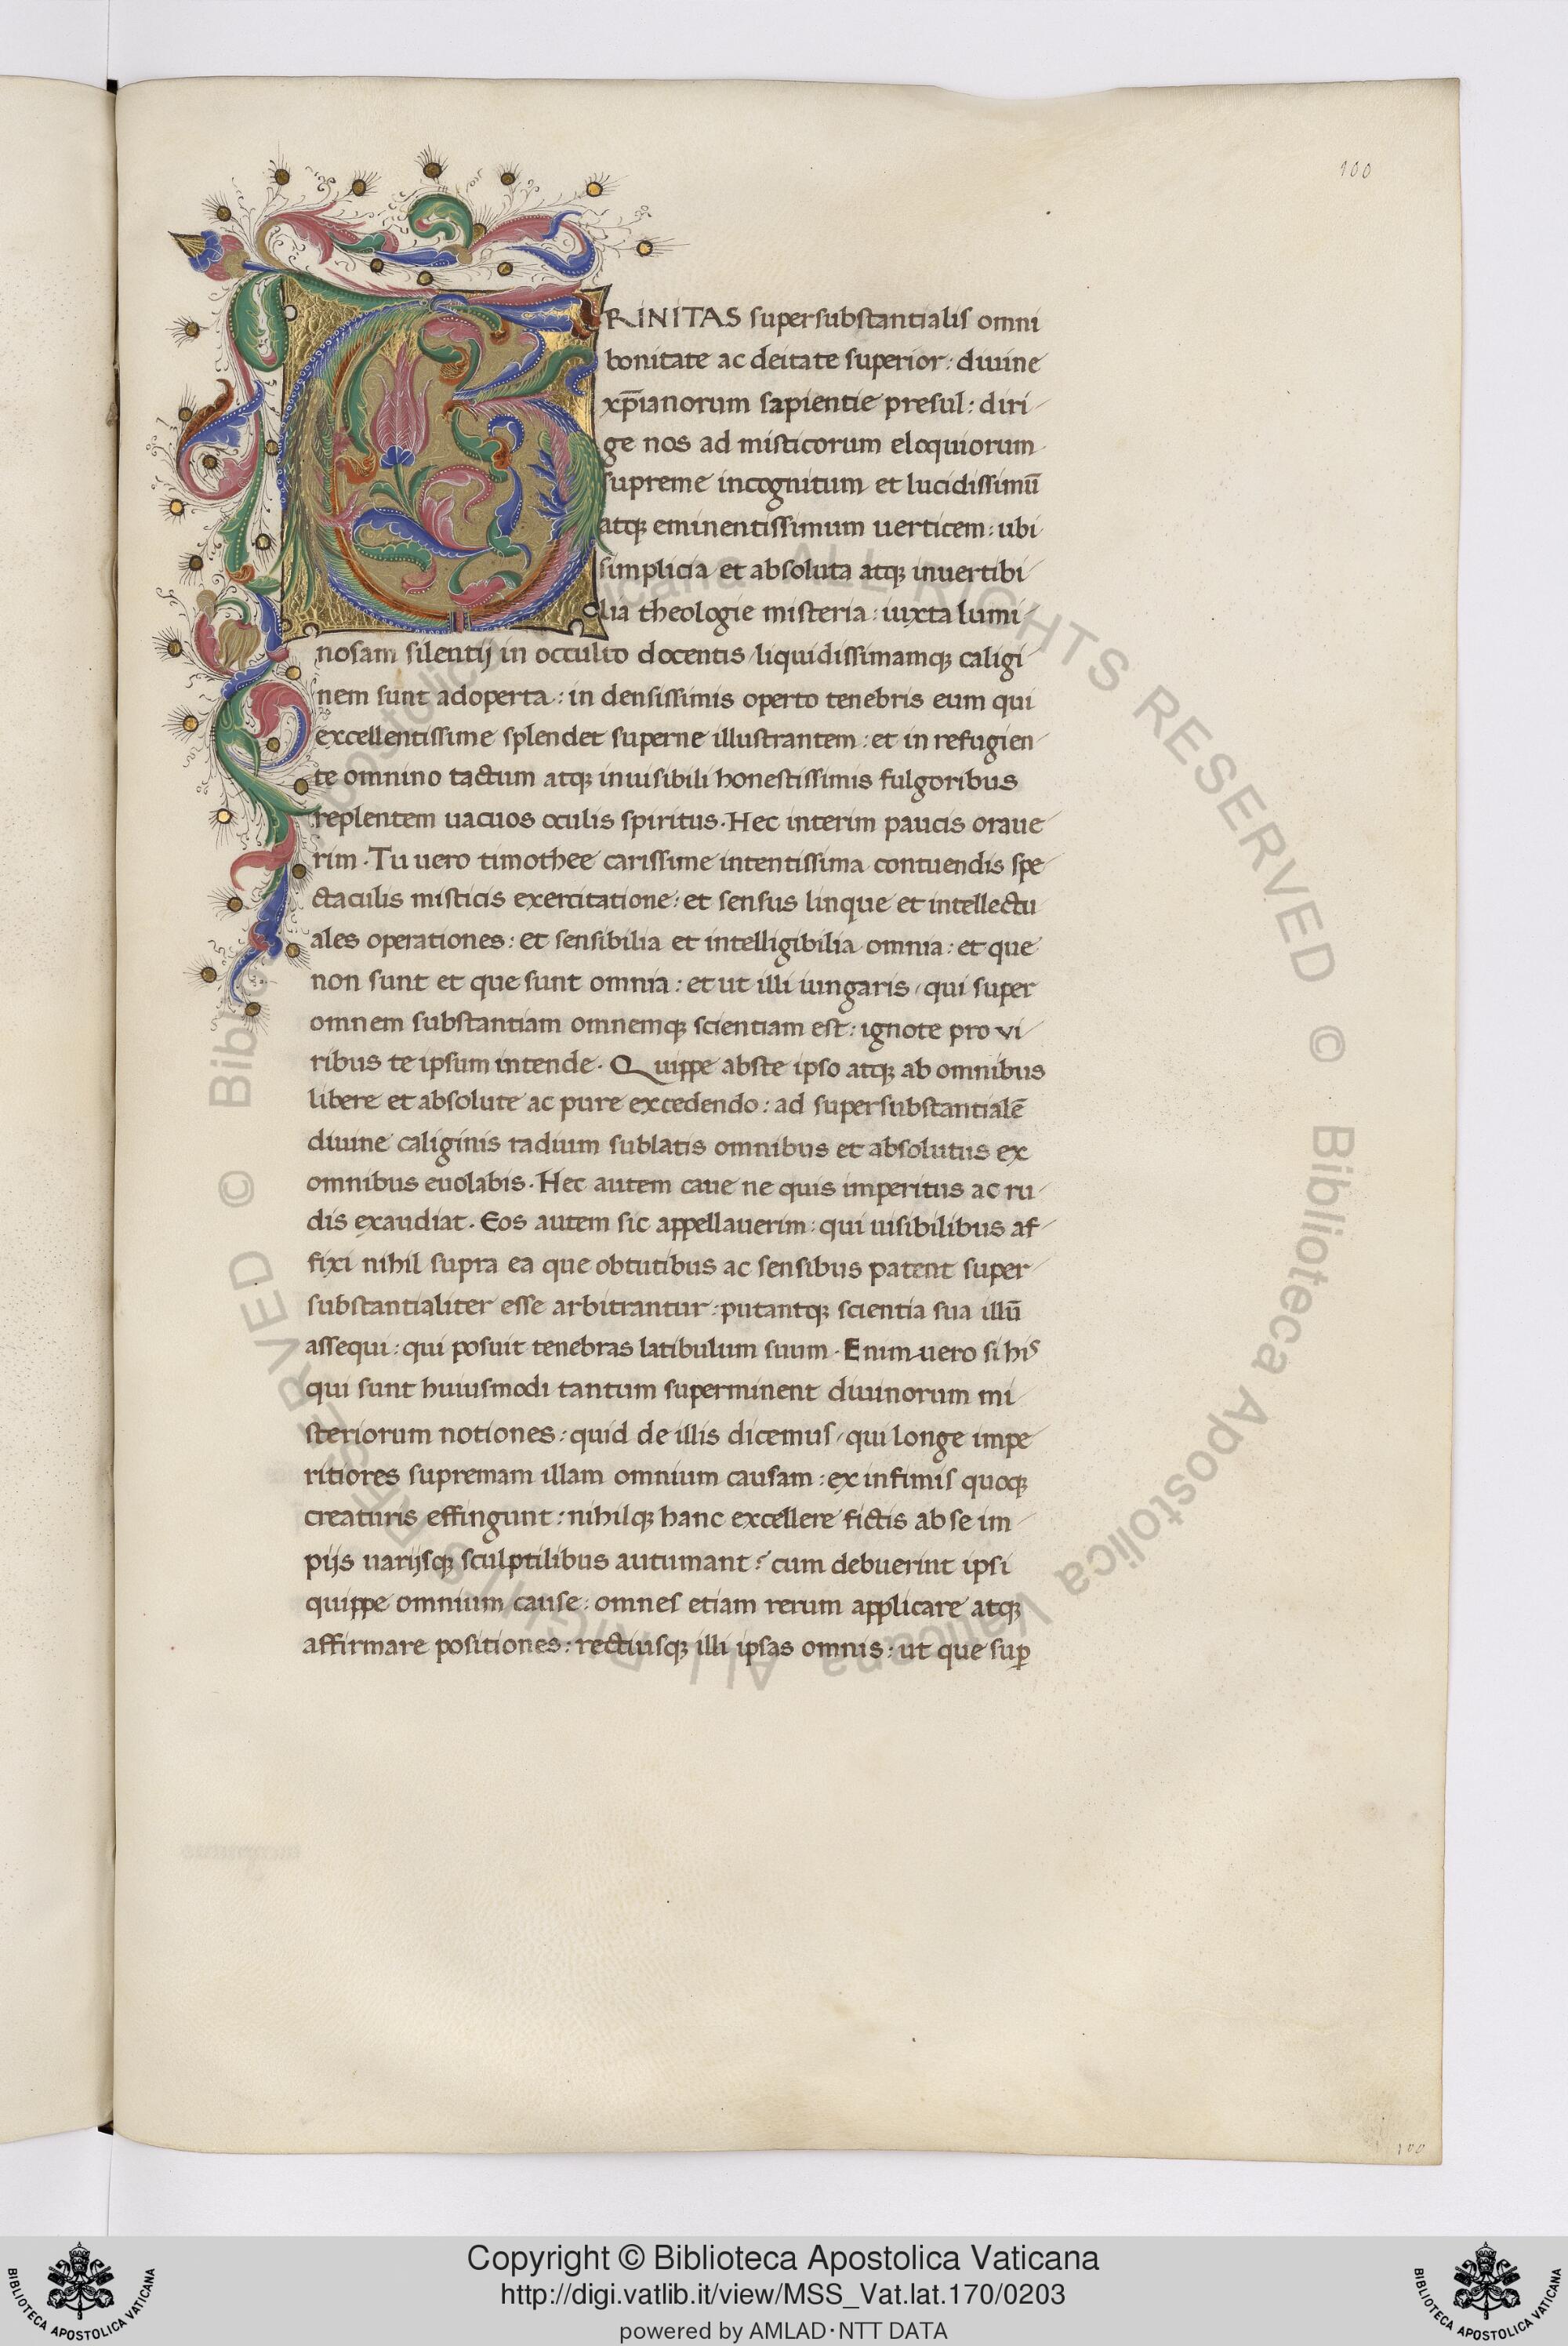 100
TRINITAS supersubstantialis omni
bonitate ac deitate superior: diuine
xp̄ianorum sapientie presul: diri
ge nos ad misticorum eloquiorum
supreme incognitum et lucidissimū
atqꝫ eminentissimum uerticem: ubi
simplicia et absoluta atqꝫ inuertibi
lia theologie misteria: iuxta lumi
nosam silentij in occulto docentis liquidissimamqꝫ caligi
nem sunt adoperta: in densissimis operto tenebris eum qui
excellentissime splendet superne illustrantem: et in refugien
te omnino tactum atqꝫ inuisibili honestissimis fulgoribus
replentem uacuos oculis spiritus. Hec interim paucis oraue
rim. Tu uero timothee carissime intentissima contuendis spe
ctaculis misticis exercitatione: et sensus linque et intellectu
ales operationes: et sensibilia et intelligibilia omnia: et que
non sunt et que sunt omnia: et ut illi iungaris, qui super
omnem substantiam omnemqꝫ scientiam est: ignote pro vi
ribus te ipsum intende. Quippe abste ipso atqꝫ ab omnibus
libere et absolute ac pure excedendo: ad supersubstantialē
diuine caliginis radium sublatis omnibus et absolutus ex
omnibus euolabis. Hec autem caue ne quis imperitus ac ru
dis exaudiat. Eos autem sic appellauerim: qui uisibilibus af
fixi nihil supra ea que obtutibus ac sensibus patent super
substantialiter esse arbitrantur: putantqꝫ scientia sua illū
assequi: qui posuit tenebras latibulum suum. Enim uero si his
qui sunt huiusmodi tantum superminent diuinorum mi
steriorum notiones: quid de illis dicemus, qui longe impe
ritiores supremam illam omnium causam: ex infimis quoqꝫ
creaturis effingunt: nihilqꝫ hanc excellere fictis ab se im
pijs uarijsqꝫ sculptilibus autumant? cum debuerint ipsi
quippe omnium cause: omnes etiam rerum applicare atqꝫ
affirmare positiones: rectiusqꝫ illi ipsas omnis: ut que suꝑ
100
Copyright © Biblioteca Apostolica Vaticana
http://digi.vatlib.it/view/MSS_Vat.lat.170/0203
powered by AMLAD·NTT DATA
BIBLIOTECA APOSTOLICA VATICANA
BIBLIOTECA APOSTOLICA VATICANA
© Biblioteca Apostolica Vaticana ALL RIGHTS RESERVED
© Biblioteca Apostolica Vaticana ALL RIGHTS RESERVED